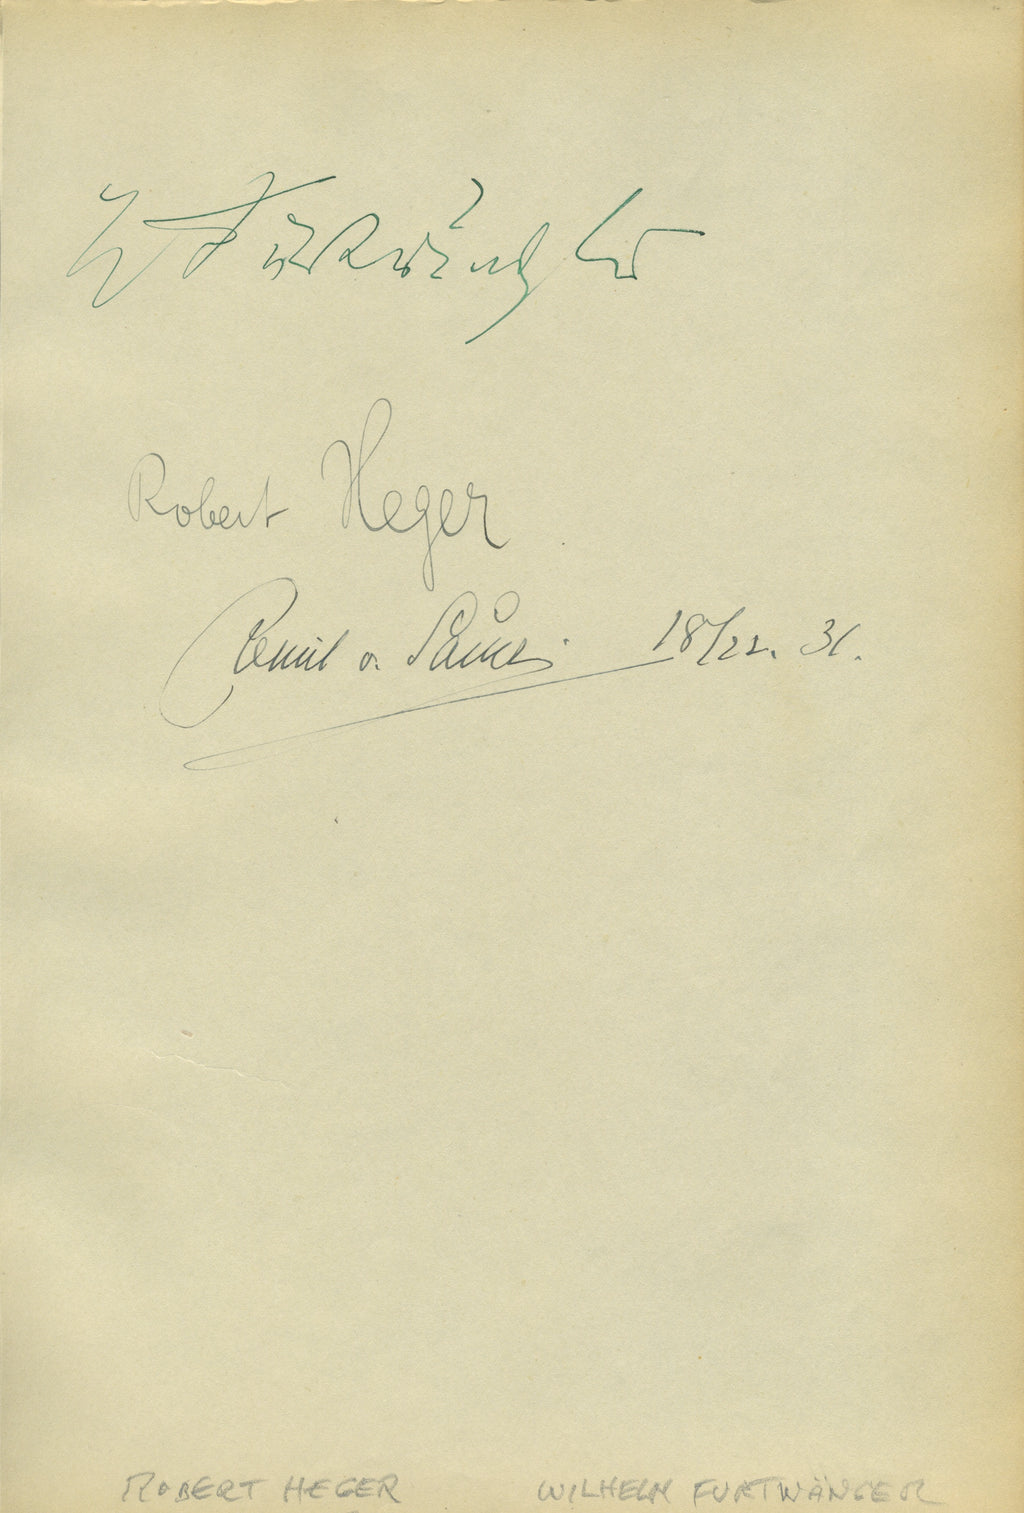 W Furtwängler
Robert Heger
Emil v. Sauer 18/12. 31.
ROBERT HEGER WILHELM FURTWÄNGER